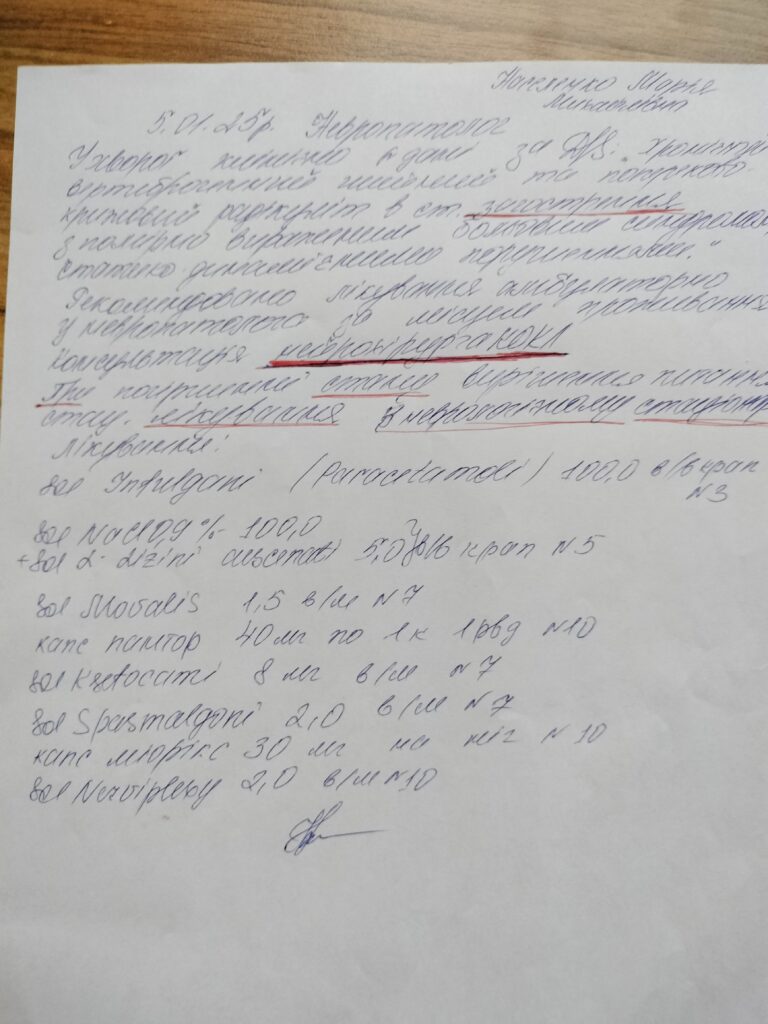 5.01.25р. Невропатолог
У хворої клінічно дані за DS: хронічний
вертеброгенний шийний та попереково
крижовий радикуліт в ст. загострення
з помірно вираженим больовим синдромом,
статико-динамічними порушеннями."
Рекомендовано лікування амбулаторно
у невропатолога за місцем проживання
Консультація нейрохірурга КОКЛ
При погіршенні стану вирішення питання
стац. лікування в неврологічному стаціонарі
Лікування:
Sol Infulgani (Paracetamoli) 100,0 в/в крап
N3
Sol NaCl 0,9% 100,0
+ Sol L-lizini aescinati 5,0 в/в крап N5
Sol Movalis 1,5 в/м N7
капс памтор 40 мг по 1к 1рвд N10
Sol Ksefocami 8 мг в/м N7
Sol Spasmalgoni 2,0 в/м N7
капс міорікс 30 мг на ніч N10
Sol Nerviplexy 2,0 в/м N10